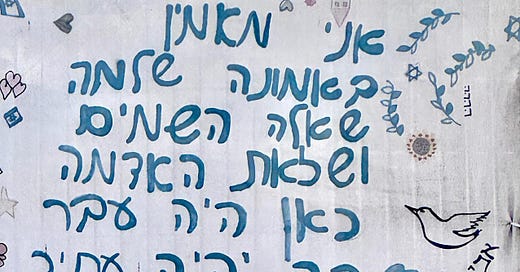 אני מאמין
באמונה שלמה
שאלה השמים
ושזאת האדמה
כאן היה עבר
יהיה עתיד